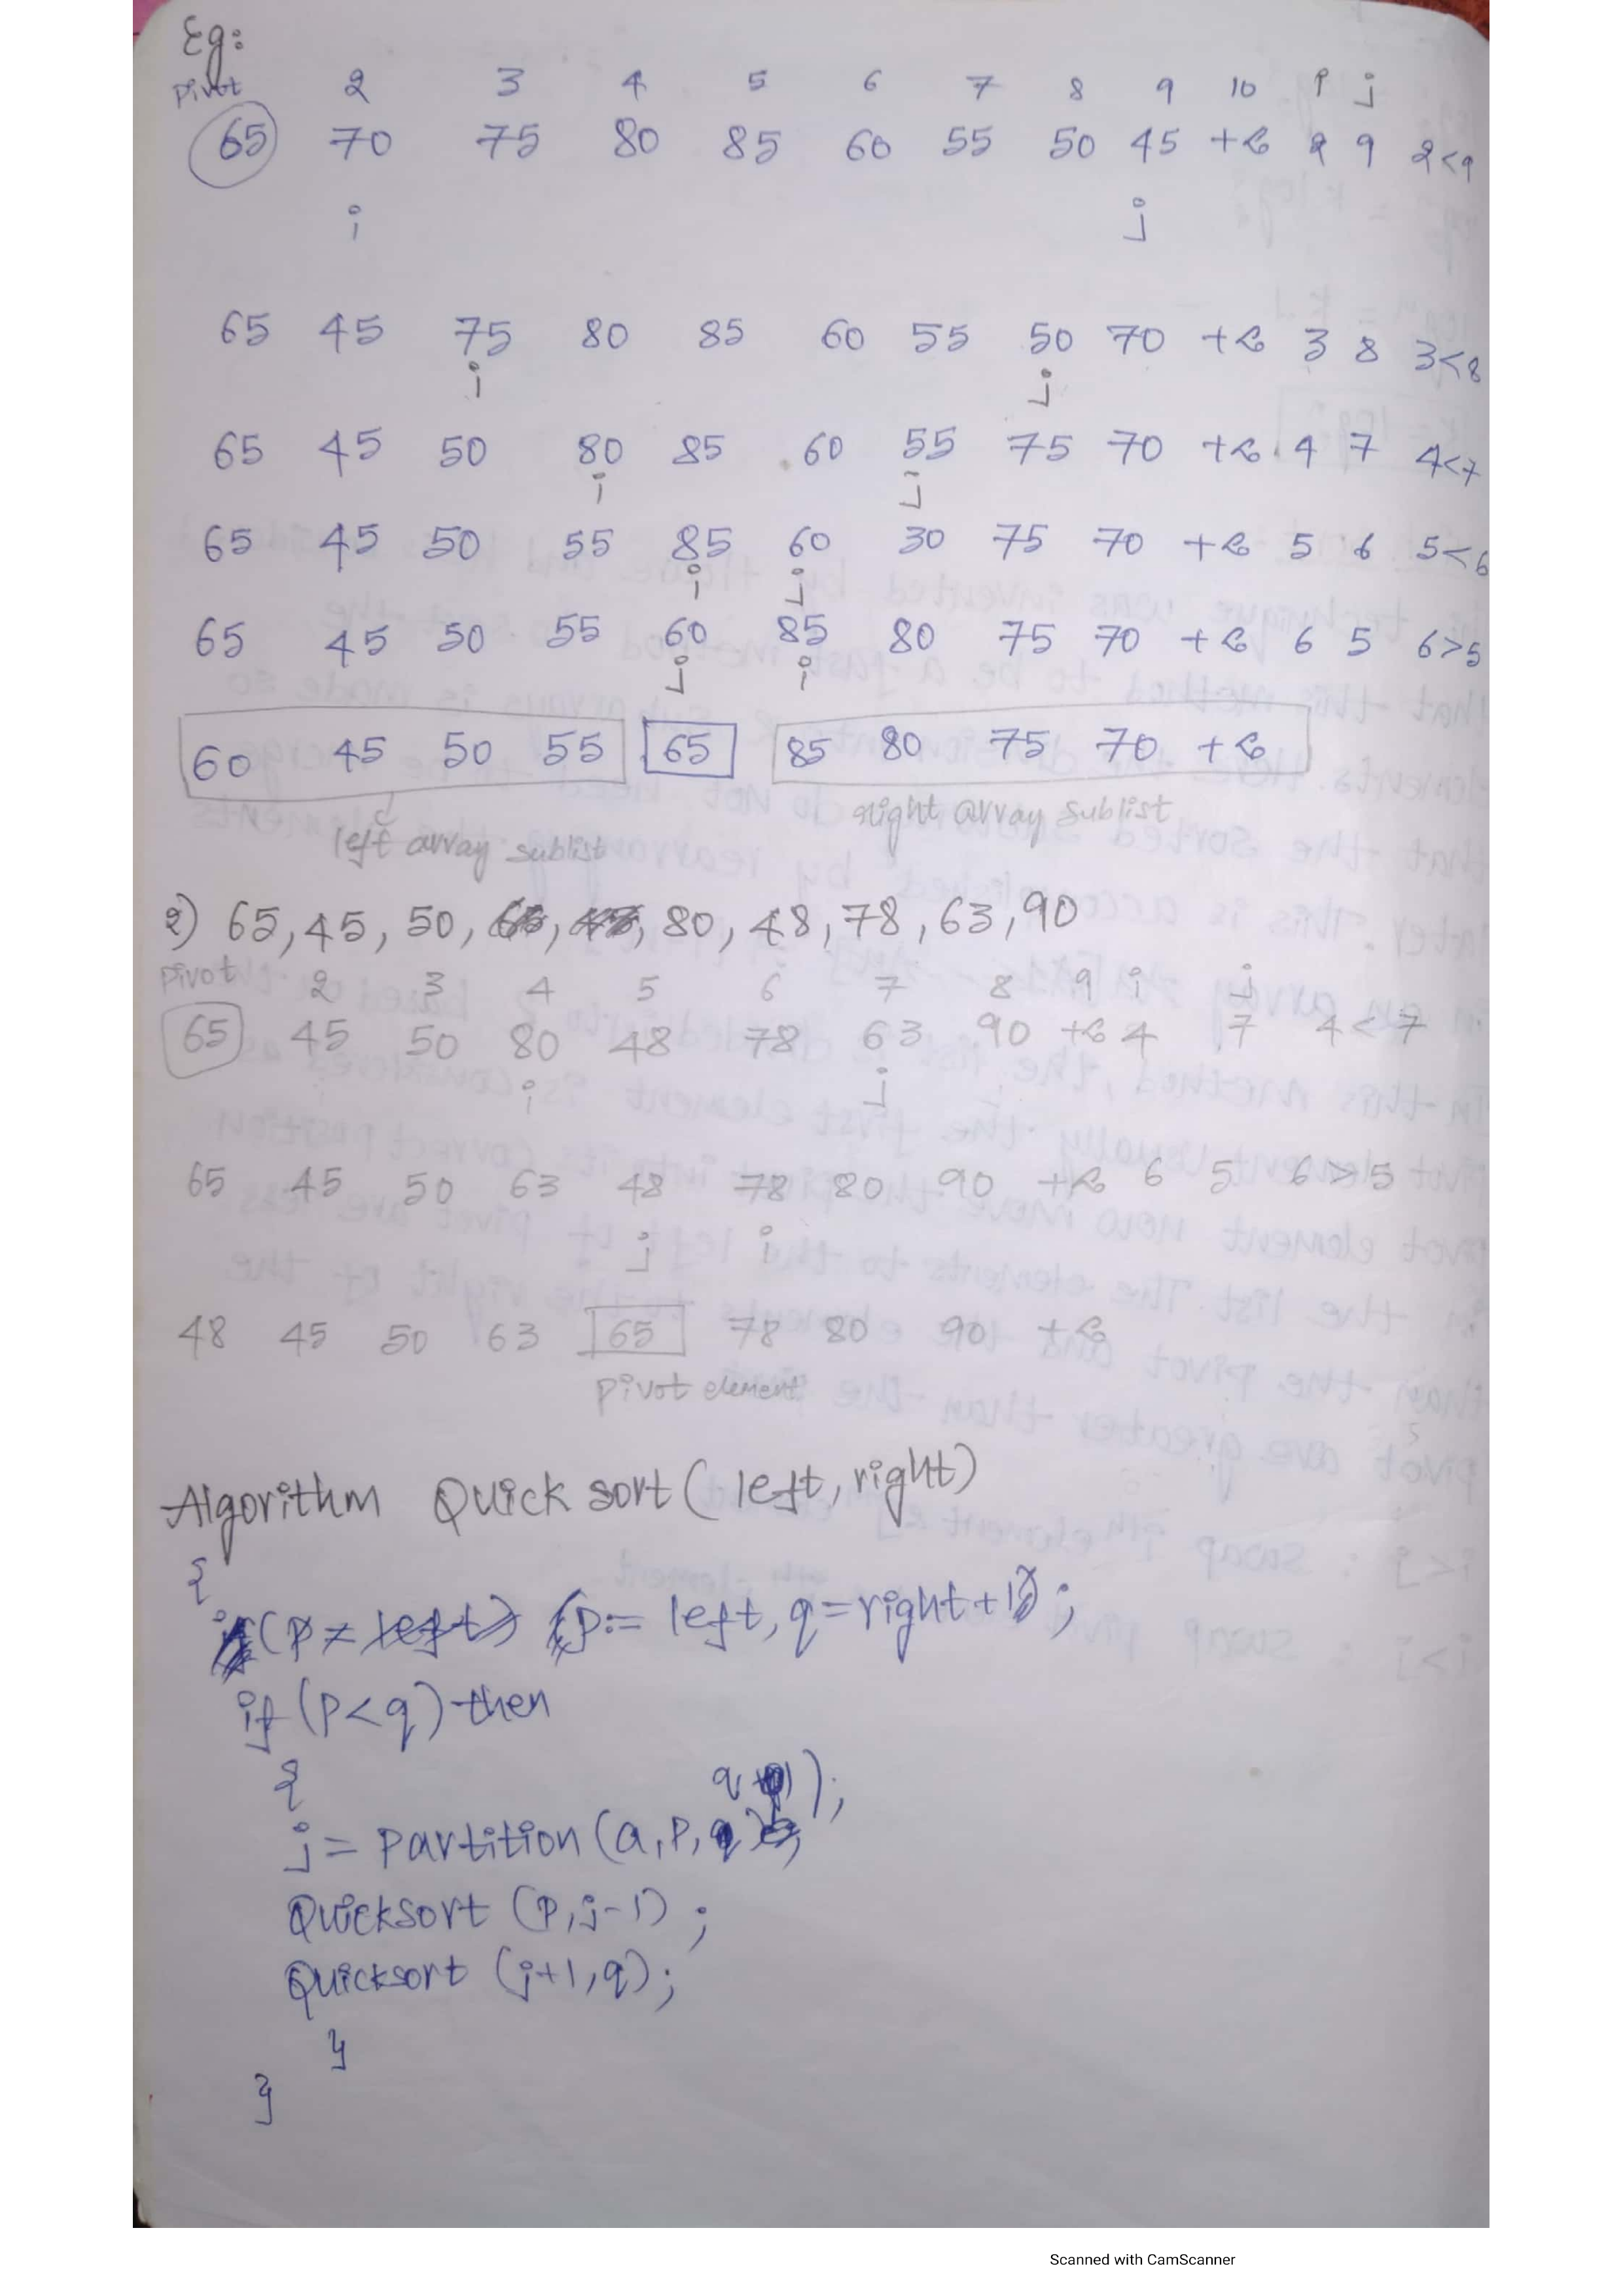 Eg:
Pivot 2 3 4 5 6 7 8 9 10 i j
65 70 75 80 85 60 55 50 45 +∞ 2 9 2<9
i j
65 45 75 80 85 60 55 50 70 +∞ 3 8 3<8
i j
65 45 50 80 85 60 55 75 70 +∞ 4 7 4<7
i j
65 45 50 55 85 60 30 75 70 +∞ 5 6 5<6
i j
65 45 50 55 60 85 80 75 70 +∞ 6 5 6>5
j i
60 45 50 55 65 85 80 75 70 +∞
left array sublist right array sublist
2) 65, 45, 50, 80, 48, 78, 63, 90
pivot 2 3 4 5 6 7 8 9 i j
65 45 50 80 48 78 63 90 +∞ 4 7 4<7
i j
65 45 50 63 48 78 80 90 +∞ 6 5 6>5
j i
48 45 50 63 65 78 80 90 +∞
pivot element
Algorithm Quick sort( left, right)
{
p:= left, q=right+1;
if (p<q) then
{
j= partition (a, p, q+1);
Quicksort (p, j-1);
Quicksort (j+1, q);
}
}
Scanned with CamScanner